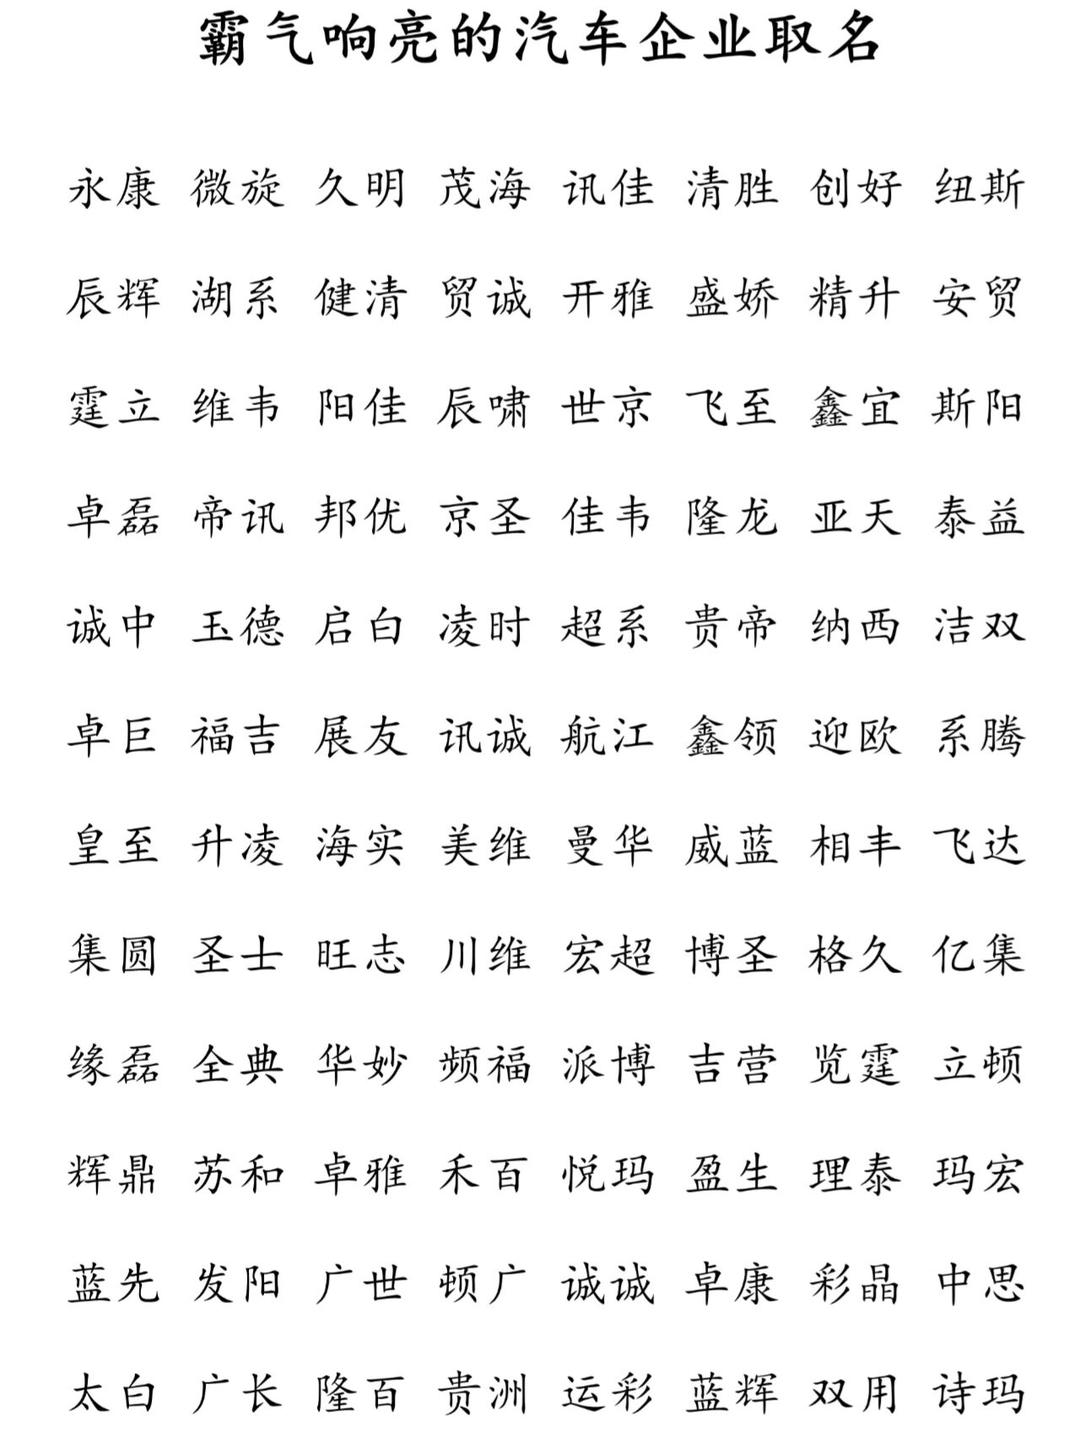 霸气响亮的汽车企业取名
永康 微旋 久明 茂海 讯佳 清胜 创好 纽斯
辰辉 湖系 健清 贸诚 开雅 盛娇 精升 安贸
霆立 维韦 阳佳 辰啸 世京 飞至 鑫宜 斯阳
卓磊 帝讯 邦优 京圣 佳韦 隆龙 亚天 泰益
诚中 玉德 启白 凌时 超系 贵帝 纳西 洁双
卓巨 福吉 展友 讯诚 航江 鑫领 迎欧 系腾
皇至 升凌 海实 美维 曼华 威蓝 相丰 飞达
集圆 圣士 旺志 川维 宏超 博圣 格久 亿集
缘磊 全典 华妙 频福 派博 吉营 览霆 立顿
辉鼎 苏和 卓雅 禾百 悦玛 盈生 理泰 玛宏
蓝先 发阳 广世 顿广 诚诚 卓康 彩晶 中思
太白 广长 隆百 贵洲 运彩 蓝辉 双用 诗玛